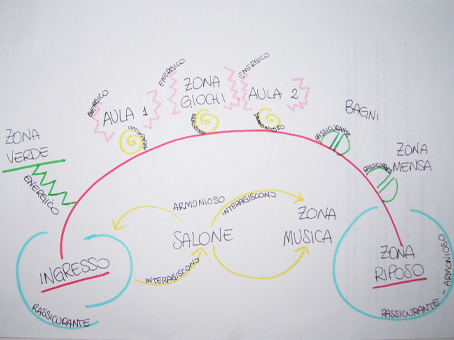 ENERGICO
ENERGICO
ENERGICO
ENERGICO
ZONA
GIOCHI
AULA 1
AULA 2
BAGNI
RASSICURANTE
ZONA
VERDE
ENERGICO
ZONA
MENSA
RASSICURANTE
ARMONIOSO
INTERAGISCONO
SALONE
ZONA
MUSICA
INTERAGISCONO
INGRESSO
RASSICURANTE
ZONA
RIPOSO
RASSICURANTE - ARMONIOSO